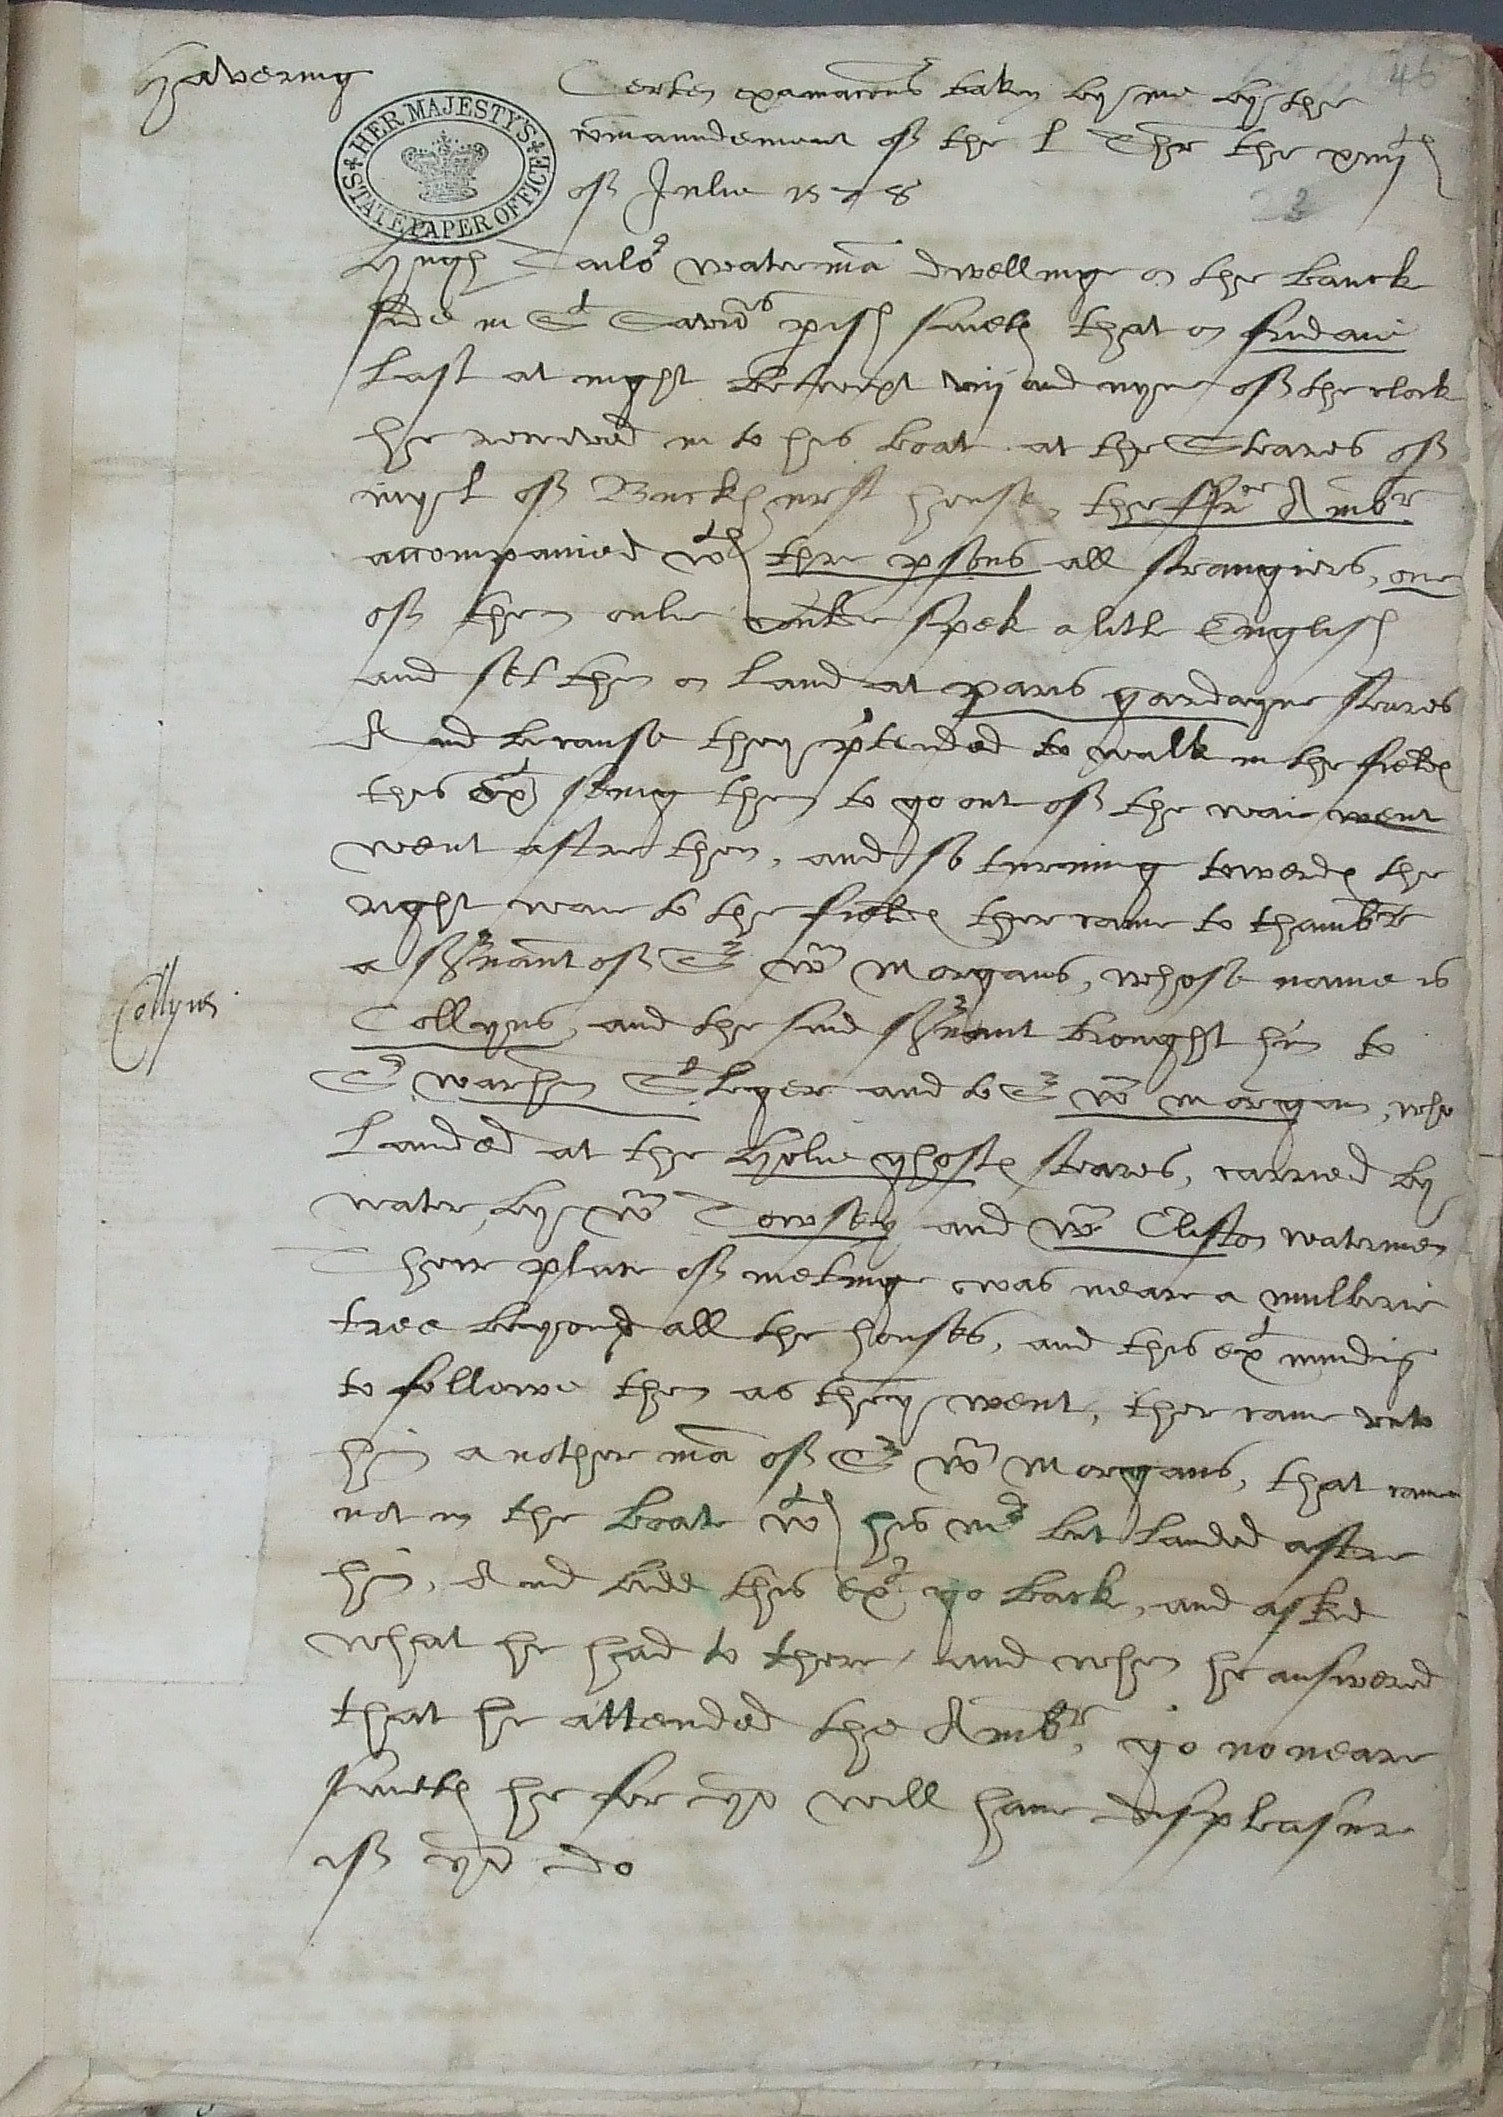 Havering
46
Certen examacons taken by me by the
comaundement of the l Thr the xiiijth
of Julie 1578
22
HER MAJESTY'S STATE PAPER OFFICE
Hugh Tailor waterma dwelling on the banck
side in St Saviors prish saieth that on fridaie
last at night betwext viij and nyne of the clock
he receaved in to his boat at the Steares of
my l of Buckhurst house, the ffr Ambr
accompanied wth thre psons all strangiers, one
of them onlie coulde spek a litle English
and set them on land at paris gardayne steares
And because they ptended to walk in the fields
this Ext seing them to go out of the waie went
went aftre them, and so turning towards the
right waie to the fields ther came to thambr
a servant of Sr Wm Morgans, whose name is
Collyns
Collyns, and the said servant brought him to
Sr warhm St leger and to Sr Wm morgan, who
landed at the Holie ghosts steares, carried by
water, by Wm Towsey and Wm Clifton watermen
Their place of meting was neare a mulberie
tree beyond all the houses, and this Ext minding
to followe them as they went, ther came unto
him another ma of Sr Wm Morgans, that came
not in the boate wth his mr but landed aftre
him, And badd this Ext go back, and asked
what he had to there, and when he answered
that he attended the Ambr, go no neare
saieth he for yo will have displeasure
if yo do